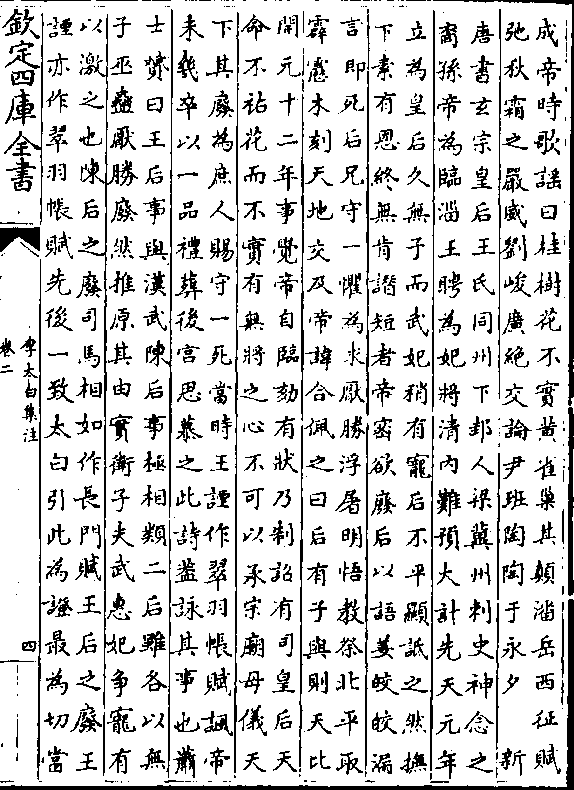 成帝時歌謡曰桂樹花不實黄雀巢其顛潘岳西征賦
弛秋霜之嚴威劉峻廣絶交論尹班陶陶于永夕 新
唐書玄宗皇后王氏同州下邽人梁冀州刺史神念之
裔孫帝為臨淄王聘為妃將清内難預大計先天元年
立為皇后久無子而武妃稍有寵后不平顯詆之然撫
下素有恩終無肯譖短者帝密欲廢后以語姜皎皎漏
言即死后兄守一懼為求厭勝浮屠明悟教祭北平取
霹靂木刻天地交及帝諱合佩之曰后有子與則天比
開元十二年事覺帝自臨劾有狀乃制詔有司皇后天
命不祐花而不實有無將之心不可以承宗廟母儀天
下其廢為庶人賜守一死當時王諲作翠羽帳賦諷帝
未幾卒以一品禮葬後宫思慕之此詩盖詠其事也蕭
士贇曰王后事與漢武陳后事極相類二后雖各以無
子巫蠱厭勝廢然推原其由實衛子夫武惠妃争寵有
以激之也陳后之廢司馬相如作長門賦王后之廢王
諲亦作翠羽帳賦先後一致太白引此為最為切當
欽定四庫全書
李太白集注
卷二
四